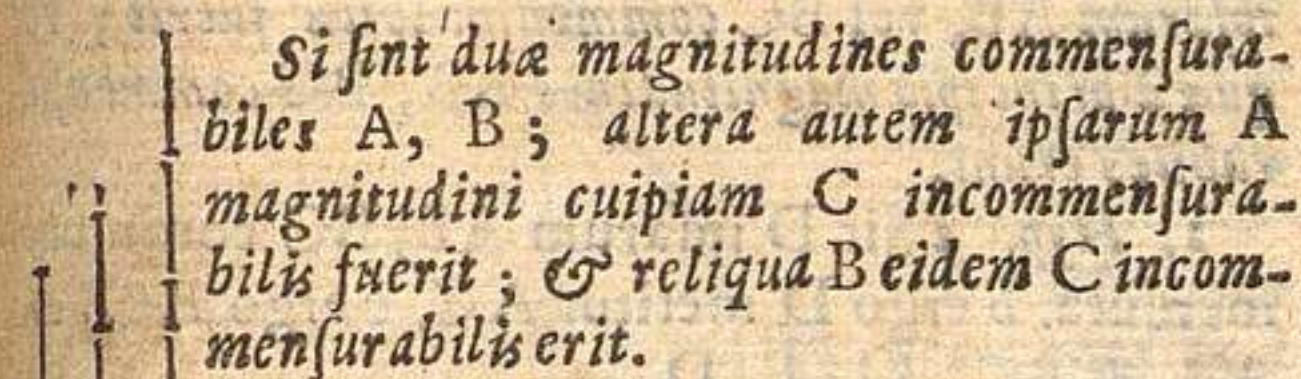 Si ſint duæ magnitudines commenſura-
biles A, B; altera autem ipſarum A
magnitudini cuipiam C incommenſura-
bilis fuerit; & reliqua B eidem C incom-
menſurabilis erit.